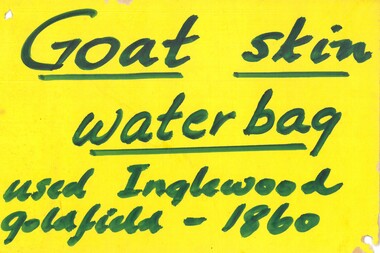 Goat skin
water bag
used Inglewood
goldfield - 1860